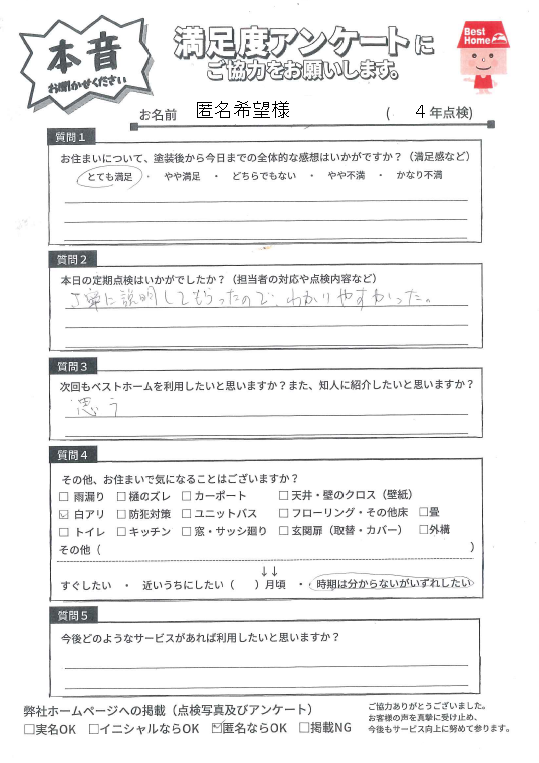 本音
お聞かせください
満足度アンケートに
ご協力をお願いします。
Best
Home
お名前 匿名希望様 ( 4 年点検)
質問1
お住まいについて、塗装後から今日までの全体的な感想はいかがですか?(満足感など)
とても満足 ・ やや満足 ・ どちらでもない ・ やや不満 ・ かなり不満
質問2
本日の定期点検はいかがでしたか?(担当者の対応や点検内容など)
丁寧に説明してもらったので、わかりやすかった。
質問3
次回もベストホームを利用したいと思いますか?また、知人に紹介したいと思いますか?
思う
質問4
その他、お住まいで気になることはございますか?
□ 雨漏り □ 樋のズレ □ カーポート □ 天井・壁のクロス(壁紙)
☑ 白アリ □ 防犯対策 □ ユニットバス □ フローリング・その他床 □畳
□ トイレ □ キッチン □ 窓・サッシ廻り □ 玄関扉(取替・カバー) □外構
その他( )
↓↓
すぐしたい ・ 近いうちにしたい( )月頃 ・ 時期は分からないがいずれしたい
質問5
今後どのようなサービスがあれば利用したいと思いますか?
弊社ホームページへの掲載(点検写真及びアンケート)
□実名OK □イニシャルならOK ☑匿名ならOK □掲載NG
ご協力ありがとうございました。
お客様の声を真摯に受け止め、
今後もサービス向上に努めて参ります。